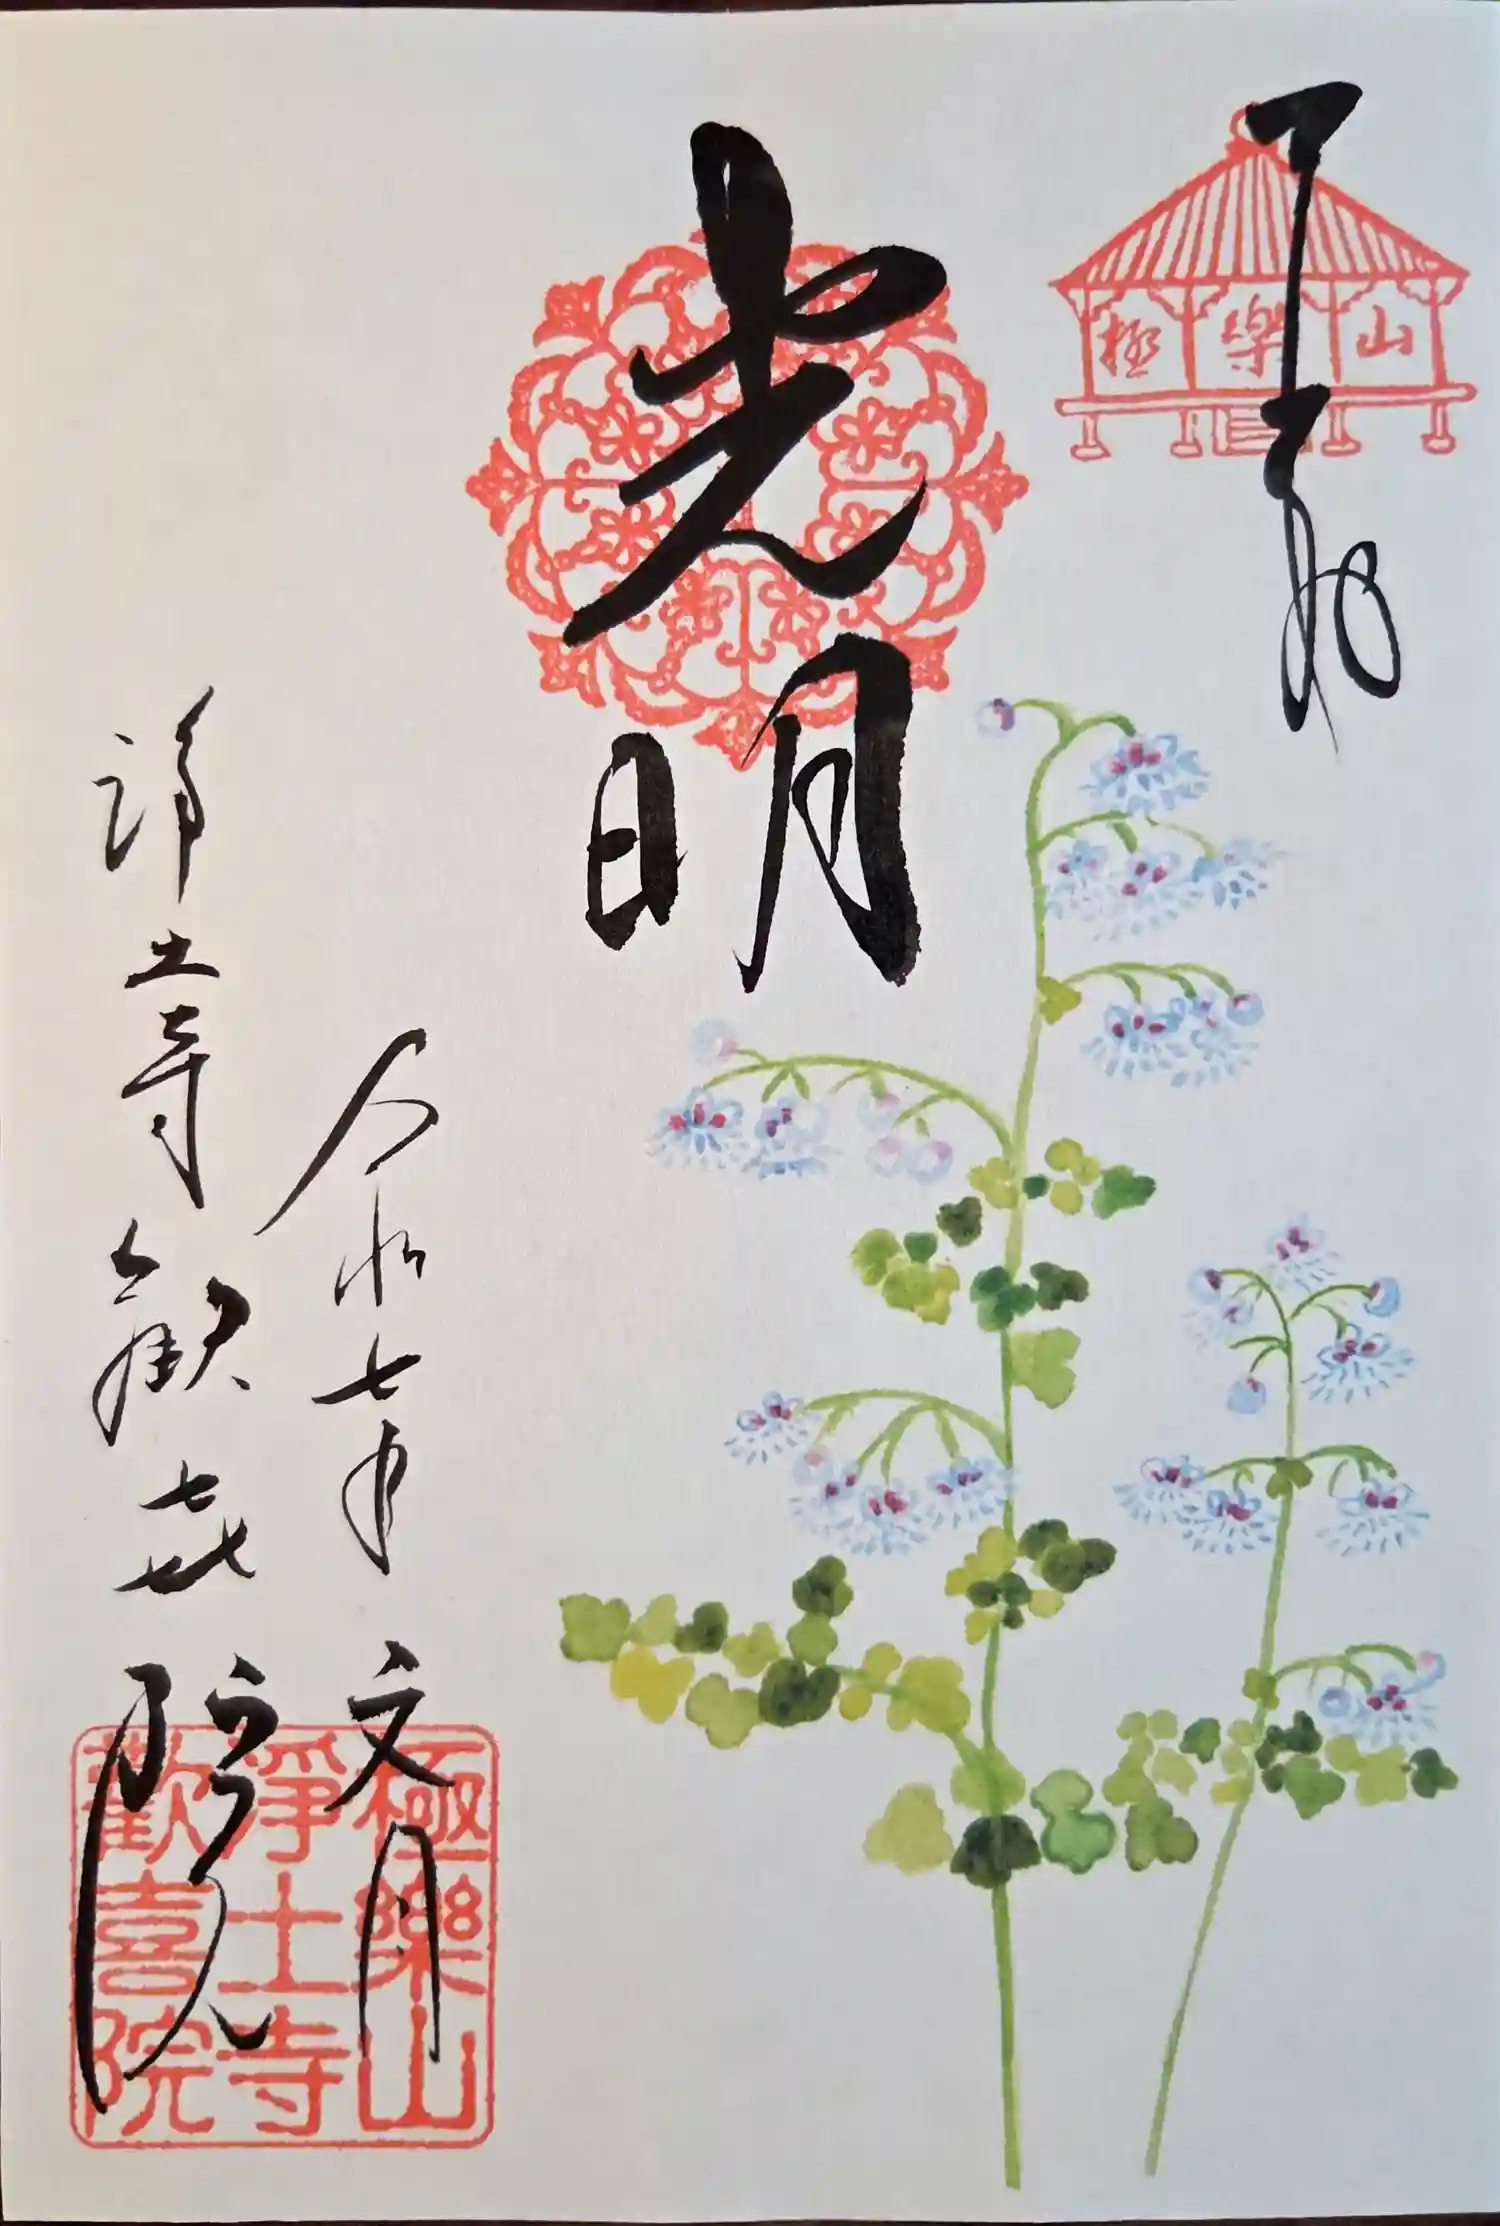 奉拝
極楽山
光明
令和七年 文月
浄土寺 歓喜院
極樂山
淨土寺
歡喜院